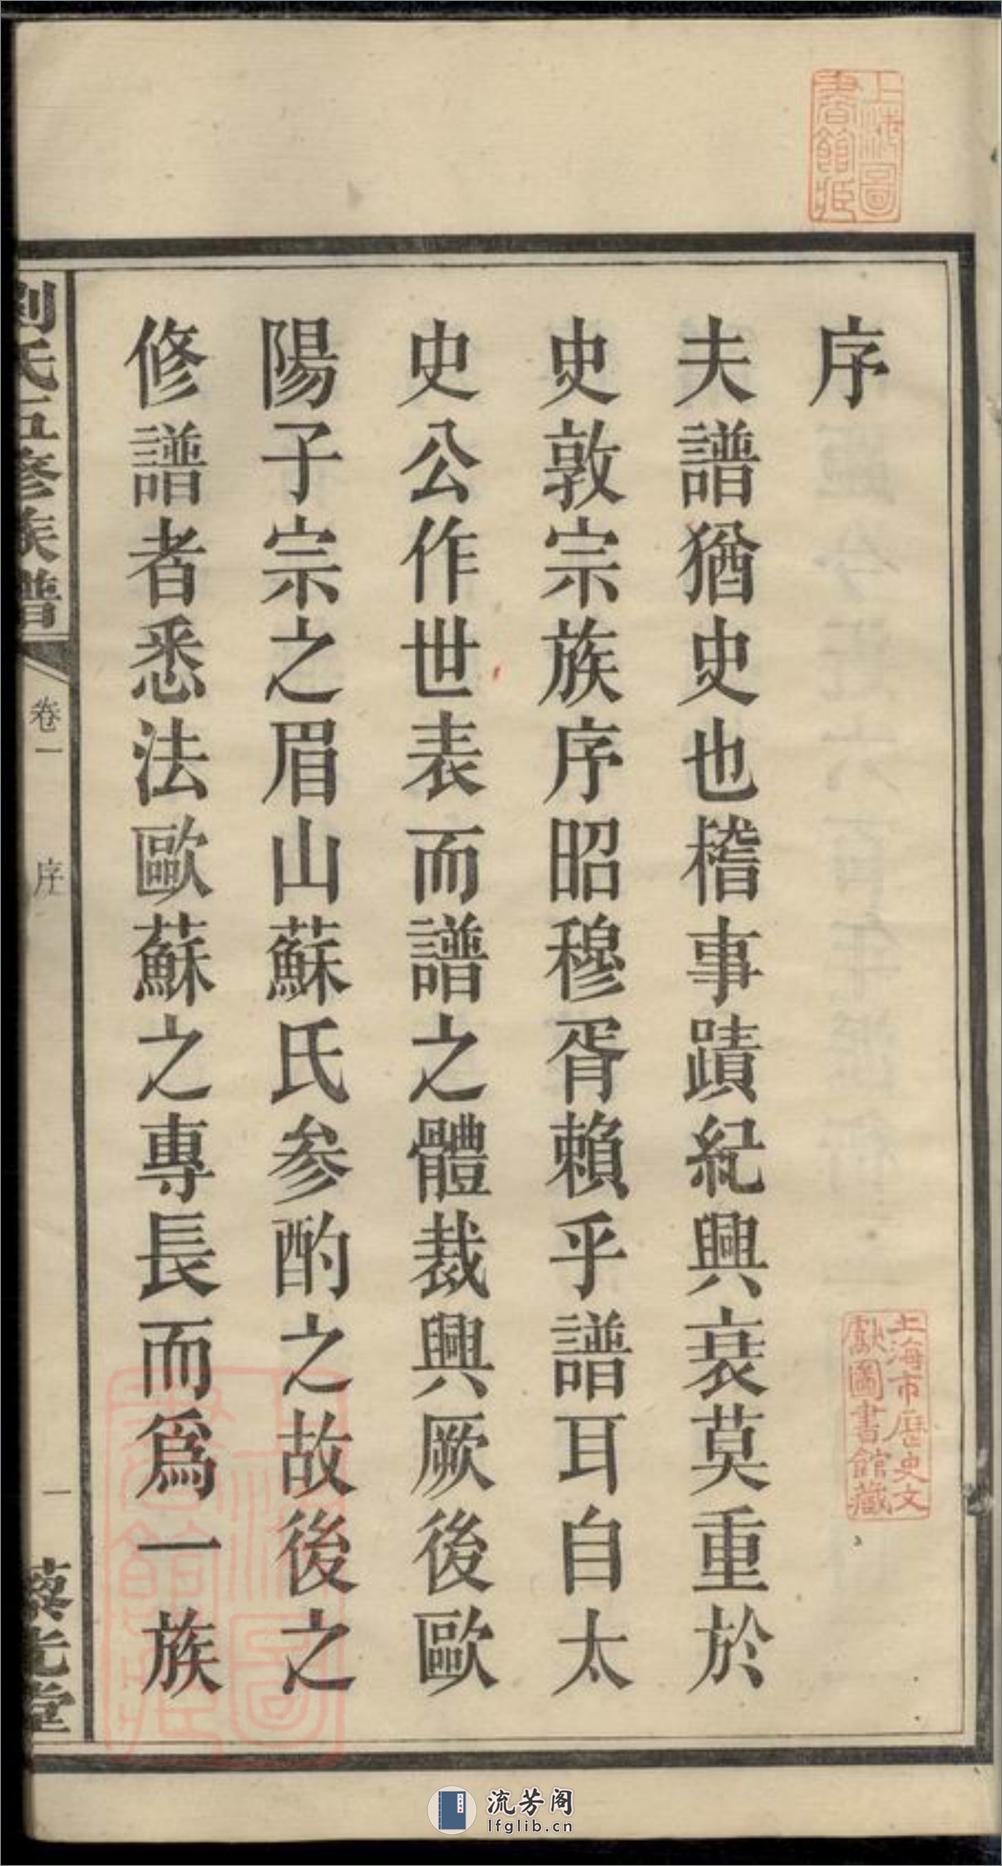 序
夫譜猶史也稽事蹟紀興衰莫重於
史敦宗族序昭穆胥賴乎譜耳自太
史公作世表而譜之體裁興厥後歐
陽子宗之眉山蘇氏參酌之故後之
修譜者悉法歐蘇之專長而爲一族
劉氏五修族譜
卷一
序
一
藜光堂
上海圖
書館藏
上海市歷史文
獻圖書館藏
上海圖
書館藏
流芳阁
lfglib.cn